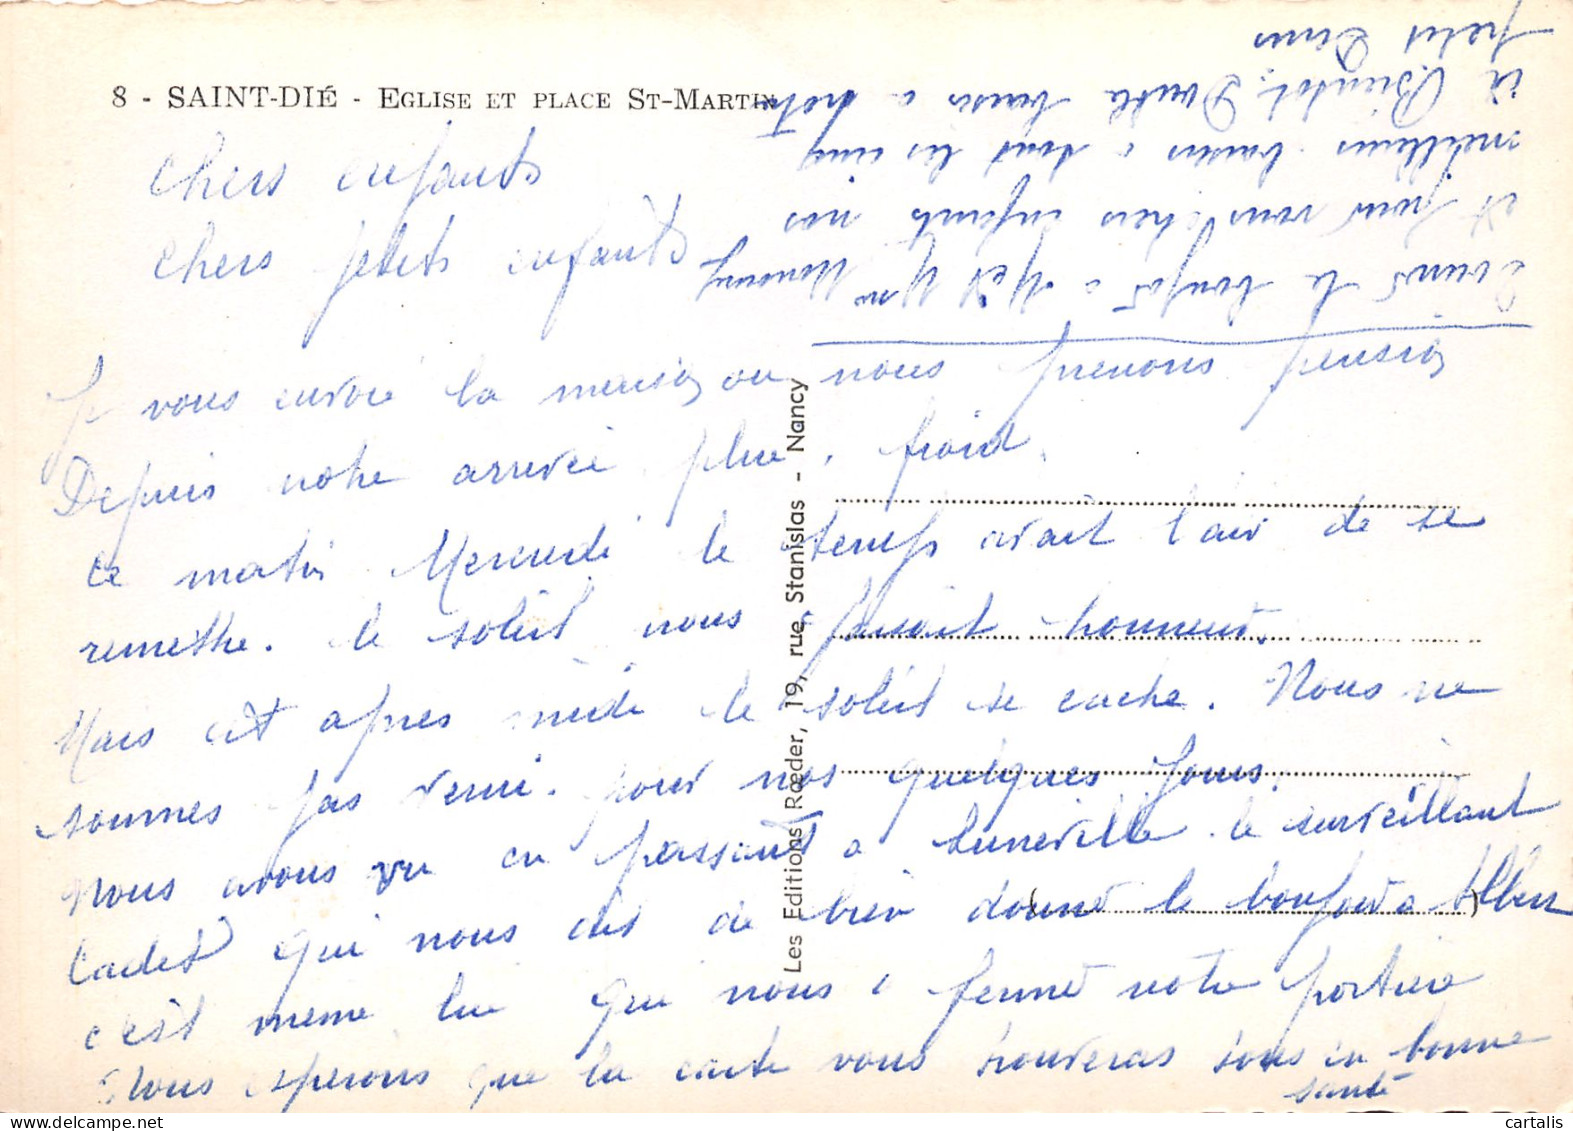 8 - SAINT-DIÉ - EGLISE ET PLACE ST-MARTIN
chers enfants
chers petits enfants
Je vous envoie la maison ou nous prenons pension
Depuis notre arrivée pluie, froid.
ce matin Mercredi le temps avait l'air de se
remethe. le soleil nous faisait honneur.
Mais cet apres midi le soleil se cache. Nous ne
sommes pas veni. pour nos quelques jours.
Nous avons vu en passant a Luneville le surveillant
Cadet qui nous dis de bien donner le bonjour a Albert
c'est meme lui que nous a fermer notre portiere
Nous esperons que la carte vous trouveras tous en bonne
santé
Donner le bonjour a M et Mme
et pour vous chers enfants nos
meilleurs baisers a tout les cinq
a Bientot, Double baiser a notre
petit
Les Editions Rœder, 19, rue Stanislas - Nancy
cartalis
www.delcampe.net